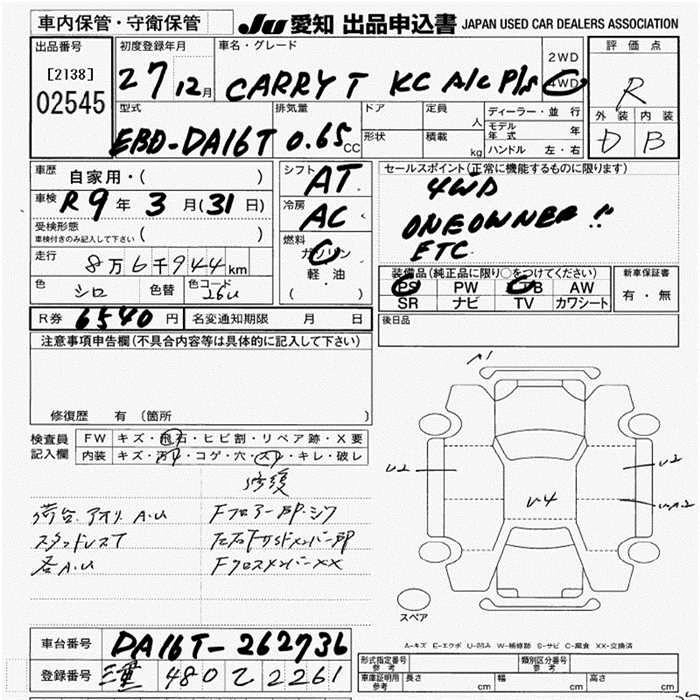 車内保管・守衛保管 JU 愛知 出品申込書 JAPAN USED CAR DEALERS ASSOCIATION
出品番号 初度登録年月 車名・グレード 評価点
[2138] 02545
27 12月 CARRY T KC A/C P/S 2WD 4WD R
型式 排気量 ドア 定員 人 ディーラー・並行 外装 内装
EBD-DA16T 0.65cc 形状 積載 kg モデル年式 年 D B
ハンドル 左・右
車歴 自家用・( ) シフト AT セールスポイント(正常に機能するものに限ります)
車検 R9年 3月(31日) 冷房 AC 4WD
受検形態 車検付きのみ記入して下さい ( ) ONE OWNER !!
燃料 ガソリン 軽油 ( ) ETC
走行 8万6千944km
色 シロ 色替 色コード 26U
装備品(純正品に限り○をつけてください) 新車保証書
PS PW AB AW 有・無
SR ナビ TV カワシート
R券 6540円 名変通知期限 月 日 後日品
注意事項申告欄(不具合内容等は具体的に記入して下さい)
修復歴 有(箇所
検査員記入欄 FW キズ・飛石・ヒビ割・リペア跡・X要
内装 キズ・汚れ・コゲ・穴・スレ・キレ・破レ
修復
荷台.アオリ A.U Fフロアー部.シワ
スタッドレスT 左右Fサイドメンバー部
各A.U Fクロスメンバー××
A1
U2
U4
U2
スペア
A-キズ E-エクボ U-凹み W-補修跡 S-サビ C-腐食 XX-交換済
車台番号 DA16T-262736
登録番号 三重 480 て 2261
形式指定番号 参考 類別区分番号 参考
車庫証明用 参考 長さ cm 幅 cm 高さ cm